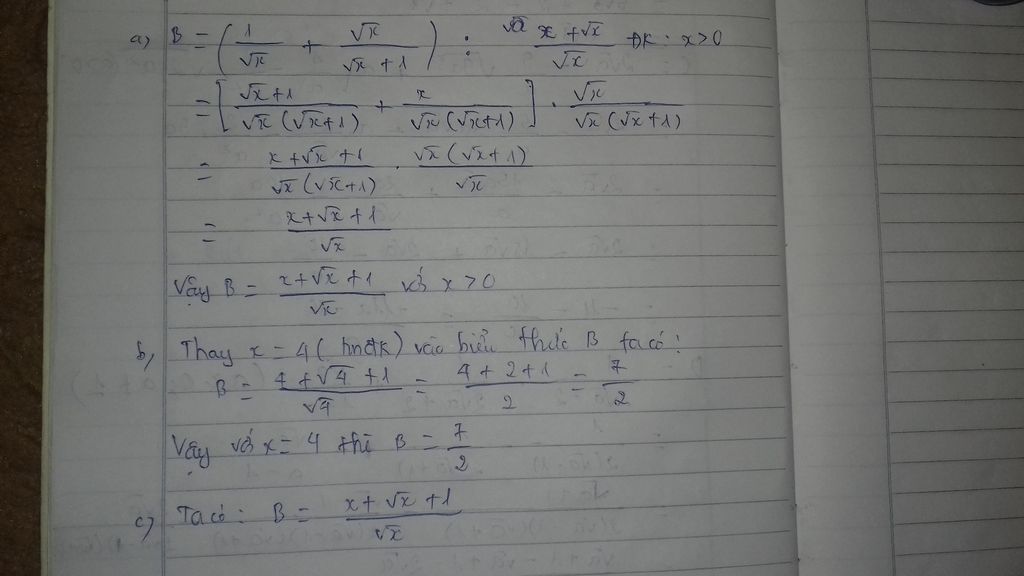 a) B = (1/√x + √x/(√x + 1)) : (x + √x)/√x ĐK: x > 0
= [(√x + 1)/(√x(√x+1)) + x/(√x(√x+1))] . √x/(√x(√x+1))
= (x + √x + 1)/(√x(√x+1)) . (√x(√x+1))/√x
= (x + √x + 1)/√x
Vậy B = (x + √x + 1)/√x với x > 0
b) Thay x = 4 (tmđk) vào biểu thức B ta có:
B = (4 + √4 + 1)/√4 = (4 + 2 + 1)/2 = 7/2
Vậy với x = 4 thì B = 7/2
c) Ta có: B = (x + √x + 1)/√x